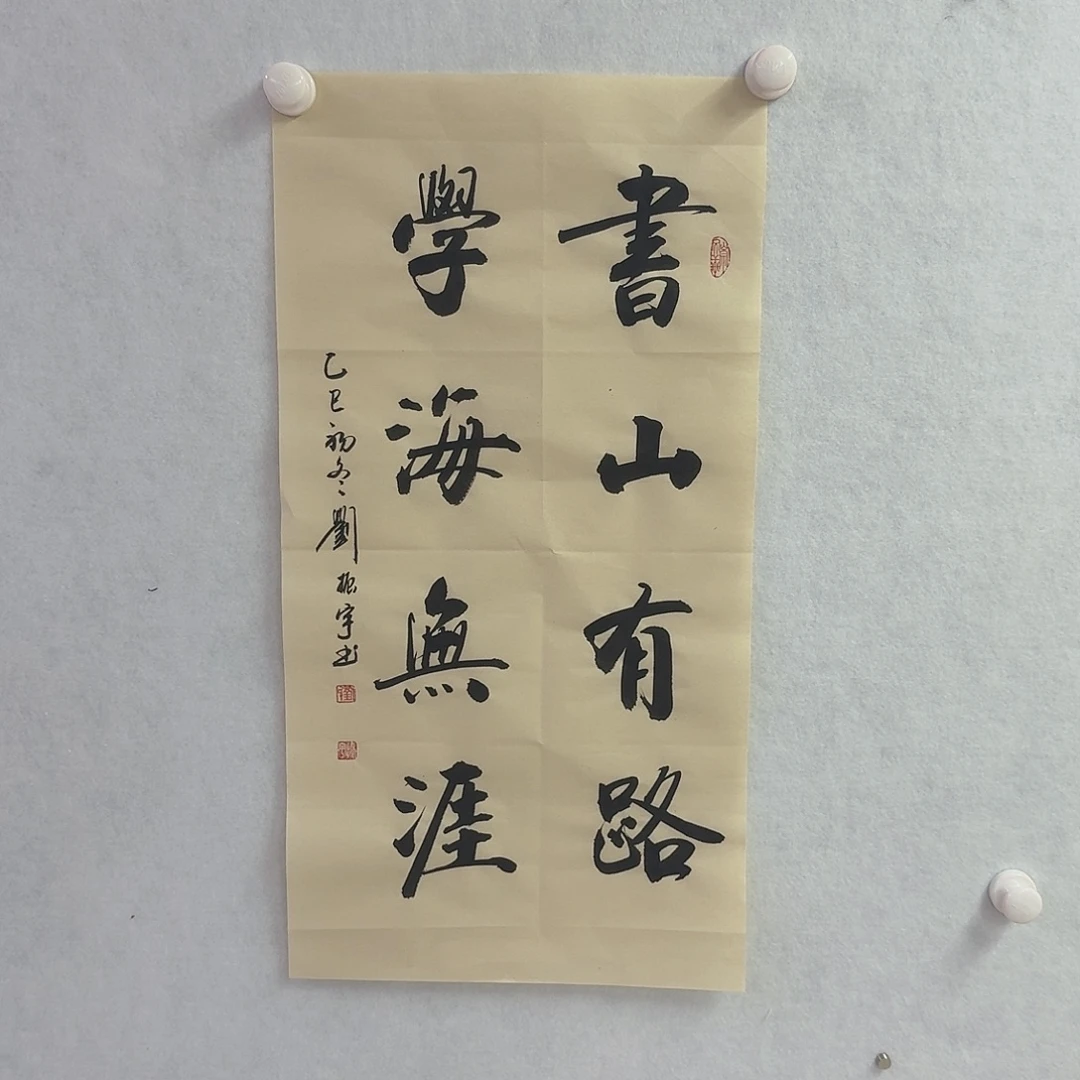 書山有路
學海無涯
乙巳初冬劉振宇书